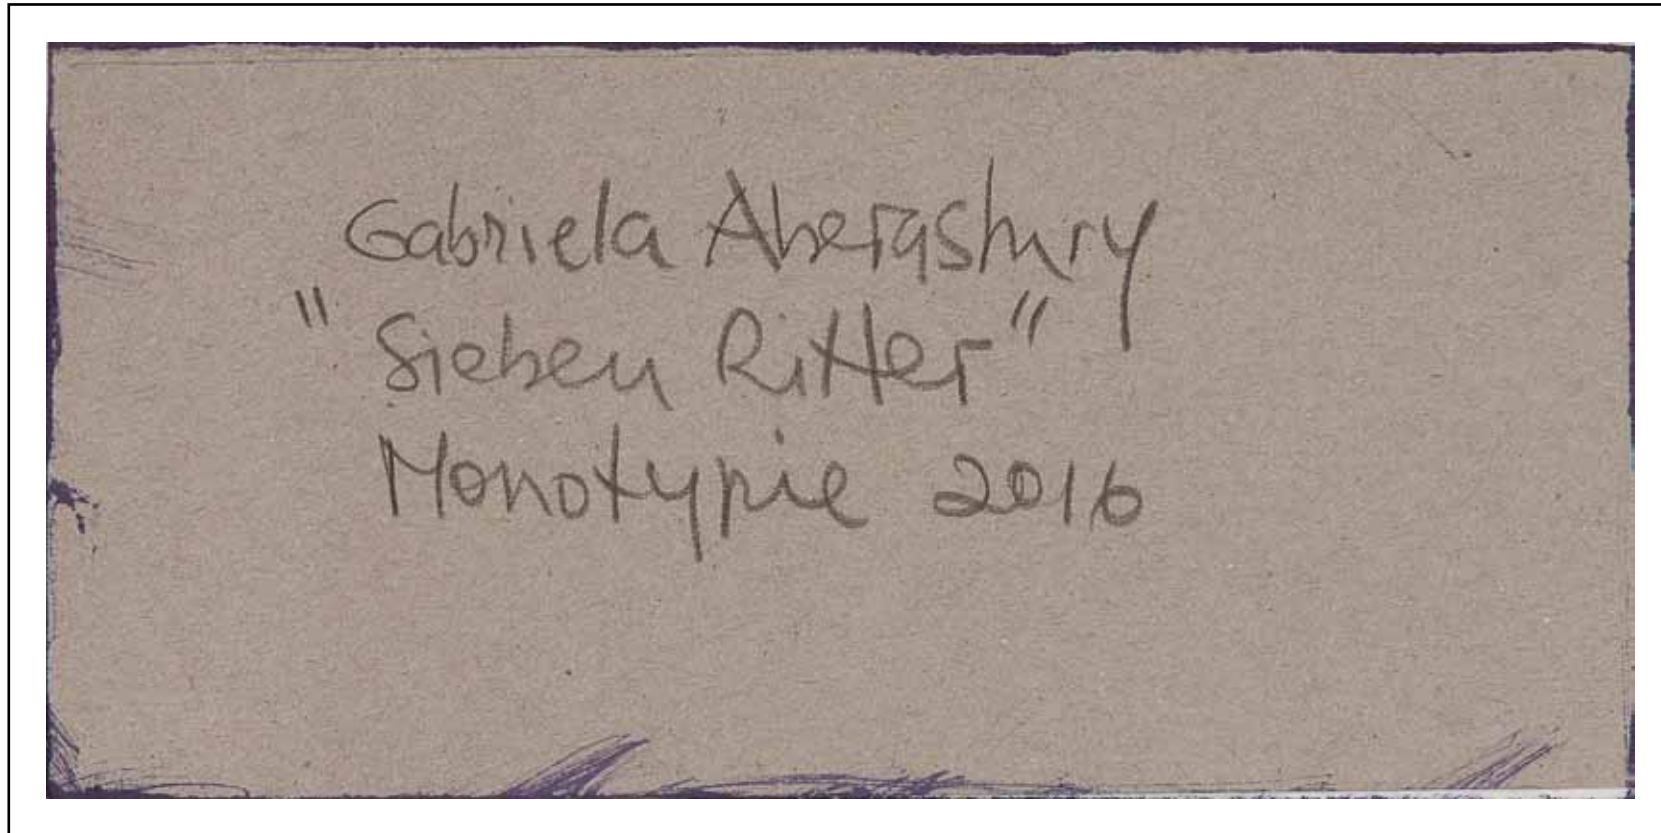 Gabriela Aberastury
"Sieben Ritter"
Monotypie 2016